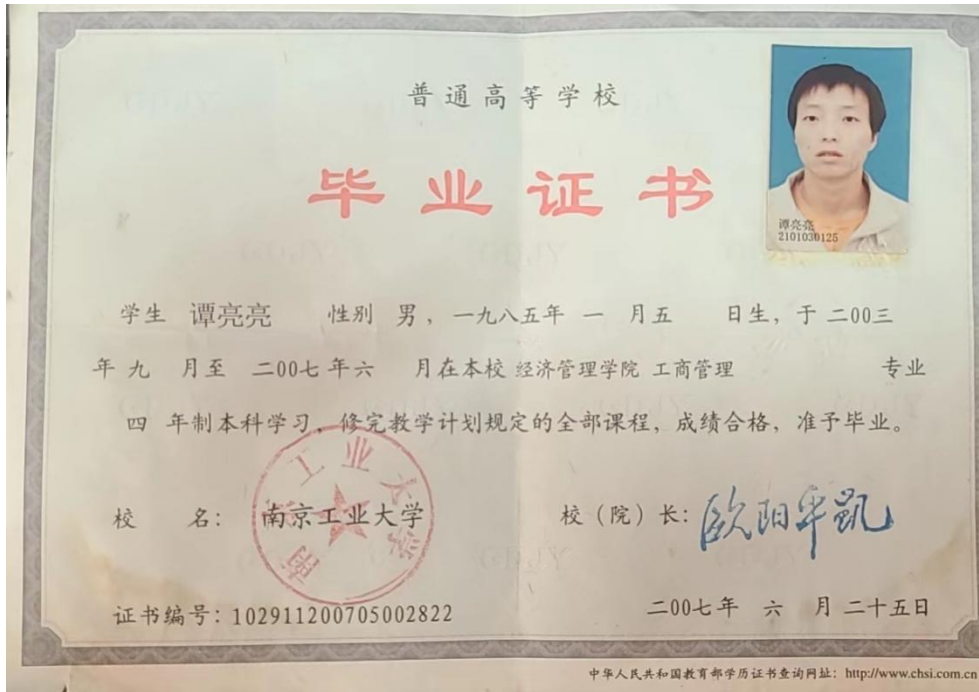 普通高等学校
毕业证书
谭亮亮
2101030125
学生 谭亮亮 性别 男，一九八五年 一 月五 日生，于 二00三
年 九 月至 二00七 年六 月在本校 经济管理学院 工商管理 专业
四 年制本科学习，修完教学计划规定的全部课程，成绩合格，准予毕业。
南京工业大学
校 名： 南京工业大学 校（院）长：欧阳平凯
证书编号：102911200705002822 二00七年 六 月 二十五日
中华人民共和国教育部学历证书查询网址：http://www.chsi.com.cn